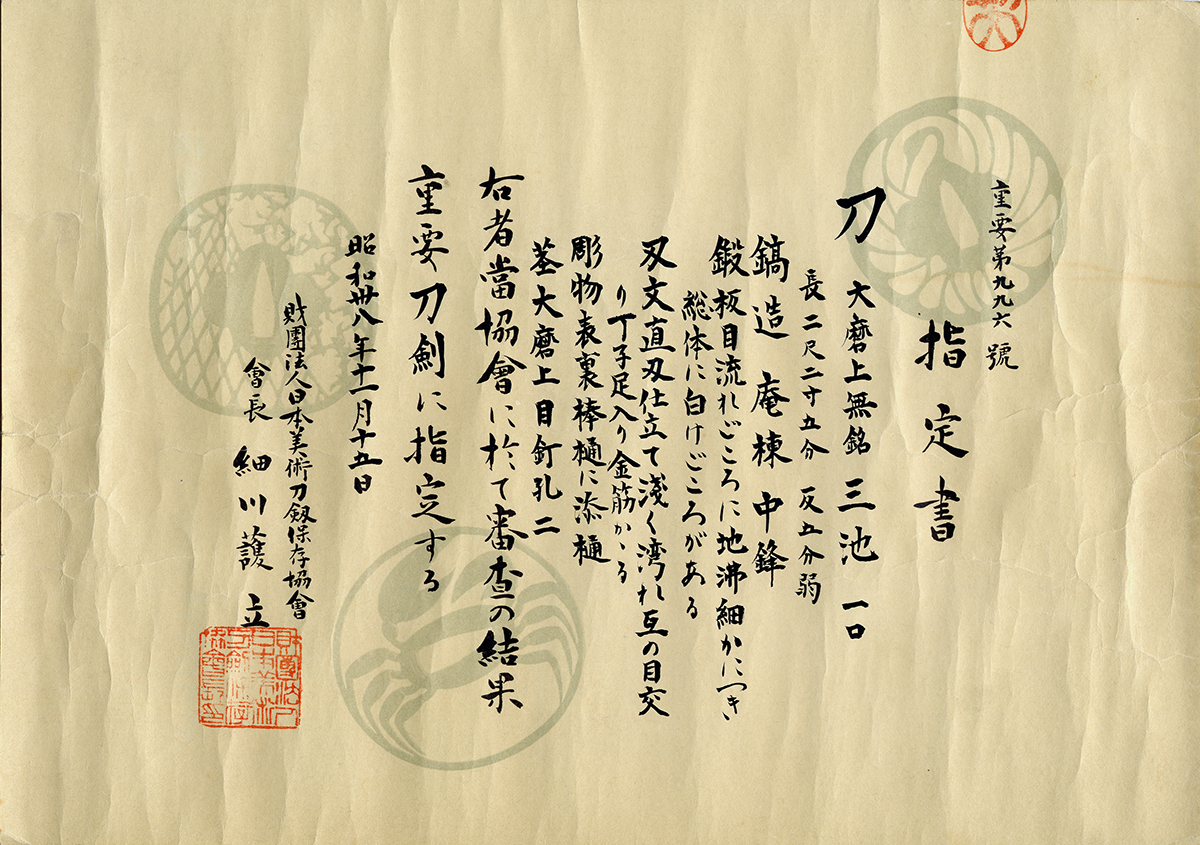 重要第九九六號
指定書
刀 大磨上無銘 三池 一口
長二尺二寸五分 反五分弱
鎬造 庵棟 中鋒
鍛板目流れごころに地沸細かにつき
総体に白けごころがある
刃文直刃仕立て淺く湾れ互の目交
り丁子足入り金筋かゝる
彫物表裏棒樋に添樋
茎大磨上目釘孔二
右者當協會に於て審査の結果
重要刀剣に指定する
昭和卅八年十一月十五日
財團法人日本美術刀剱保存協會
會長 細川護立